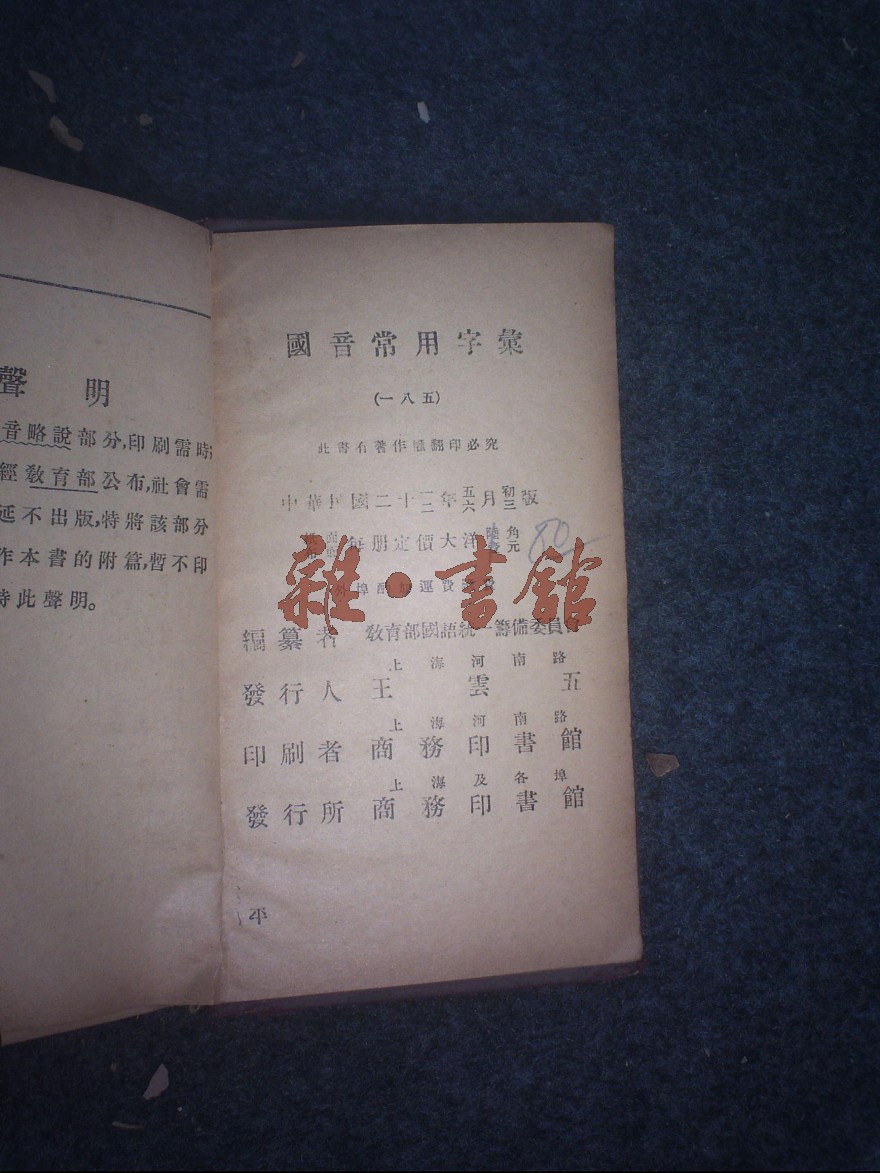 聲明
音略說部分,印刷需時
經教育部公布,社會需
延不出版,特將該部分
作本書的附篇,暫不印
特此聲明。
國音常用字彙
(一八五)
此書有著作權翻印必究
中華民國二十一年五月初版
二六三
每册定價大洋角
元
80
埠 運費
雜·書館
編纂者 教育部國語統一籌備委員會
上海河南路
發行人王雲五
上海河南路
印刷者商務印書館
上海及各埠
發行所商務印書館
平